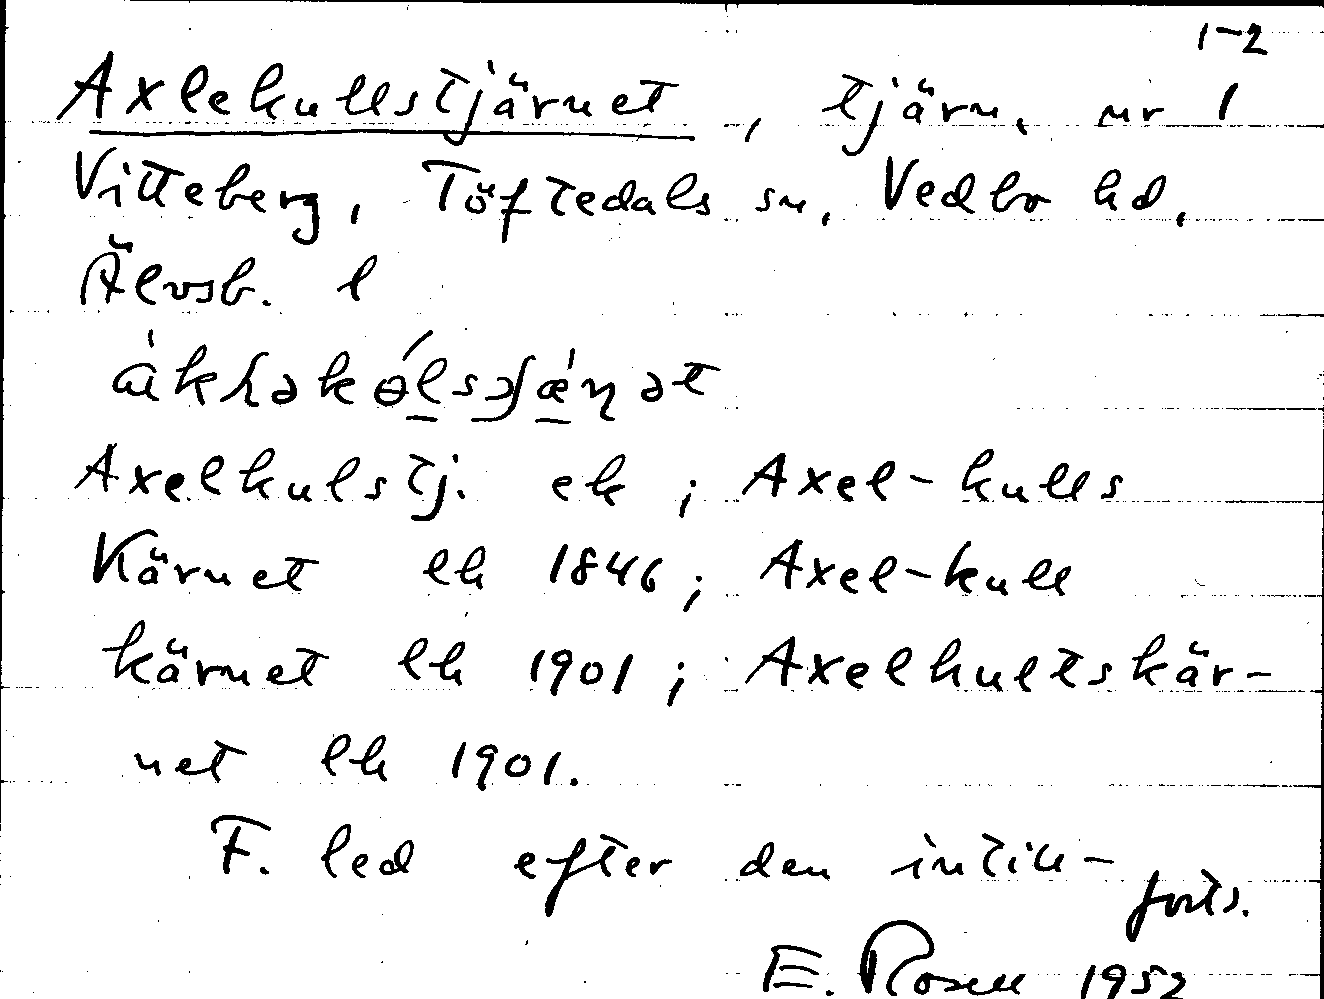 1-2
Axlekullstjärnet, tjärn, nr 1
Vitteberg, Töftedals sn, Vedbo hd,
Älvsb. l
Axelkulstj. ek; Axel-kulls
Kärnet lh 1846; Axel-kull
kärnet lh 1901; Axelkultskär-
net lh 1901.
F. led efter den intill-
forts.
E. Rosell 1952